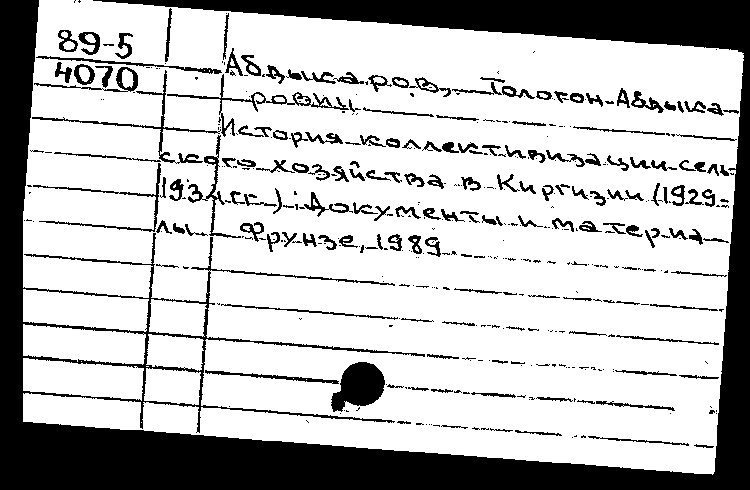 89-5
4070
Абдыкаров, Тологон Абдыка-
рович
История коллективизации сель-
ского хозяйства в Киргизии (1929-
1934 гг.): Документы и материа-
лы Фрунзе, 1989.